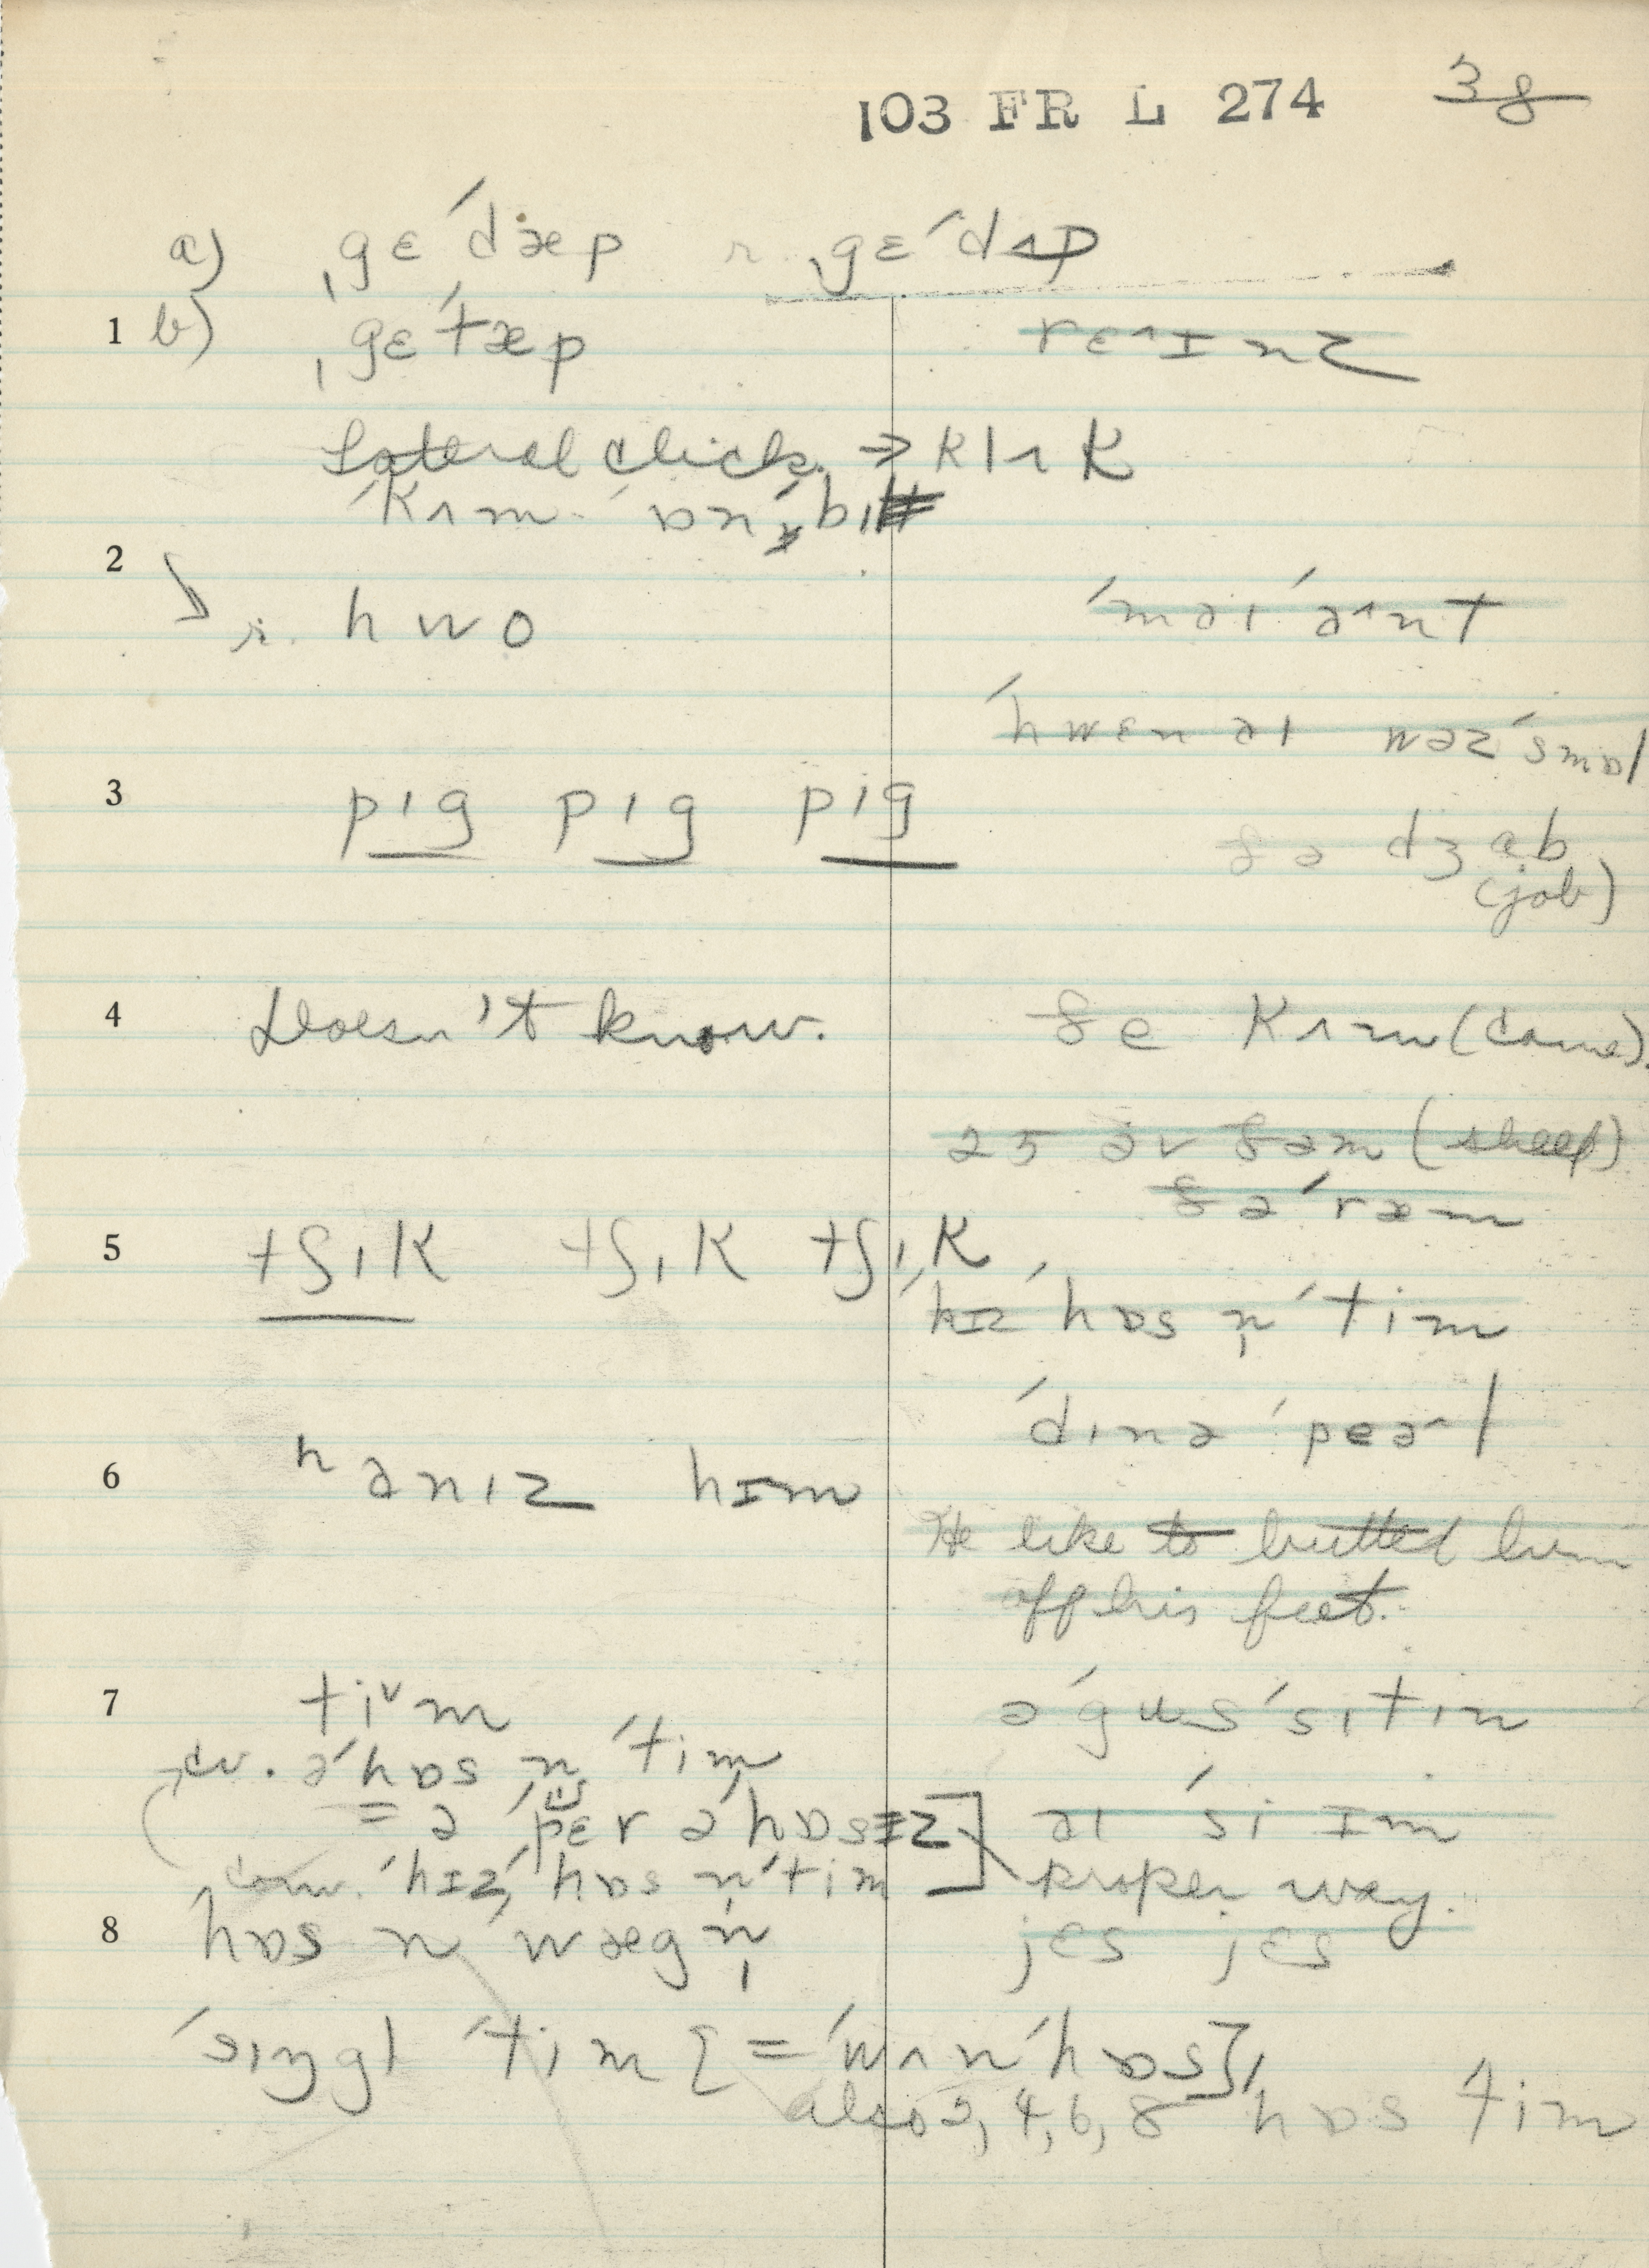 103 FR L 274 38
a) ˌgɛˈdæp r. ˌgɛˈdʌp
1 b) ˌgɛˈtæp rɛ^ɪnz
Lateral click → klʌk
ˈkʌm
2
r. hwo ˈmaɪ ˈa^nt
ˈhwɛn aɪ wəzˈsmɒl
3 pɪg pɪg pɪg ðə dʒab
(job)
4 Doesn't know. ðe kʌm (came).
25 əv ðəm (sheep)
ðəˈræm
5 tʃɪk tʃɪk tʃɪk
ˈhɪzˈhɒs n̩ˈtim
ˈdɪnəˈpeə^l
6 ʰənɪz hɪm
He like to butted him
off his feet.
7 tiᵛm əˈgʊsˈsɪtɪn
cv. əˈhɒs n̩ˈtim
= ə ˈpɛr əˈhɒsɪz] aɪ ˈsi ɪm
conv. ˈhɪzˈhɒs n̩ˈtim proper way.
8 hɒs n wægn̩ jɛs jɛs
ˈsɪŋgl ˈtim [=ˈwʌnˈhɒs],
also 2, 4, 6, 8 hɒs tim